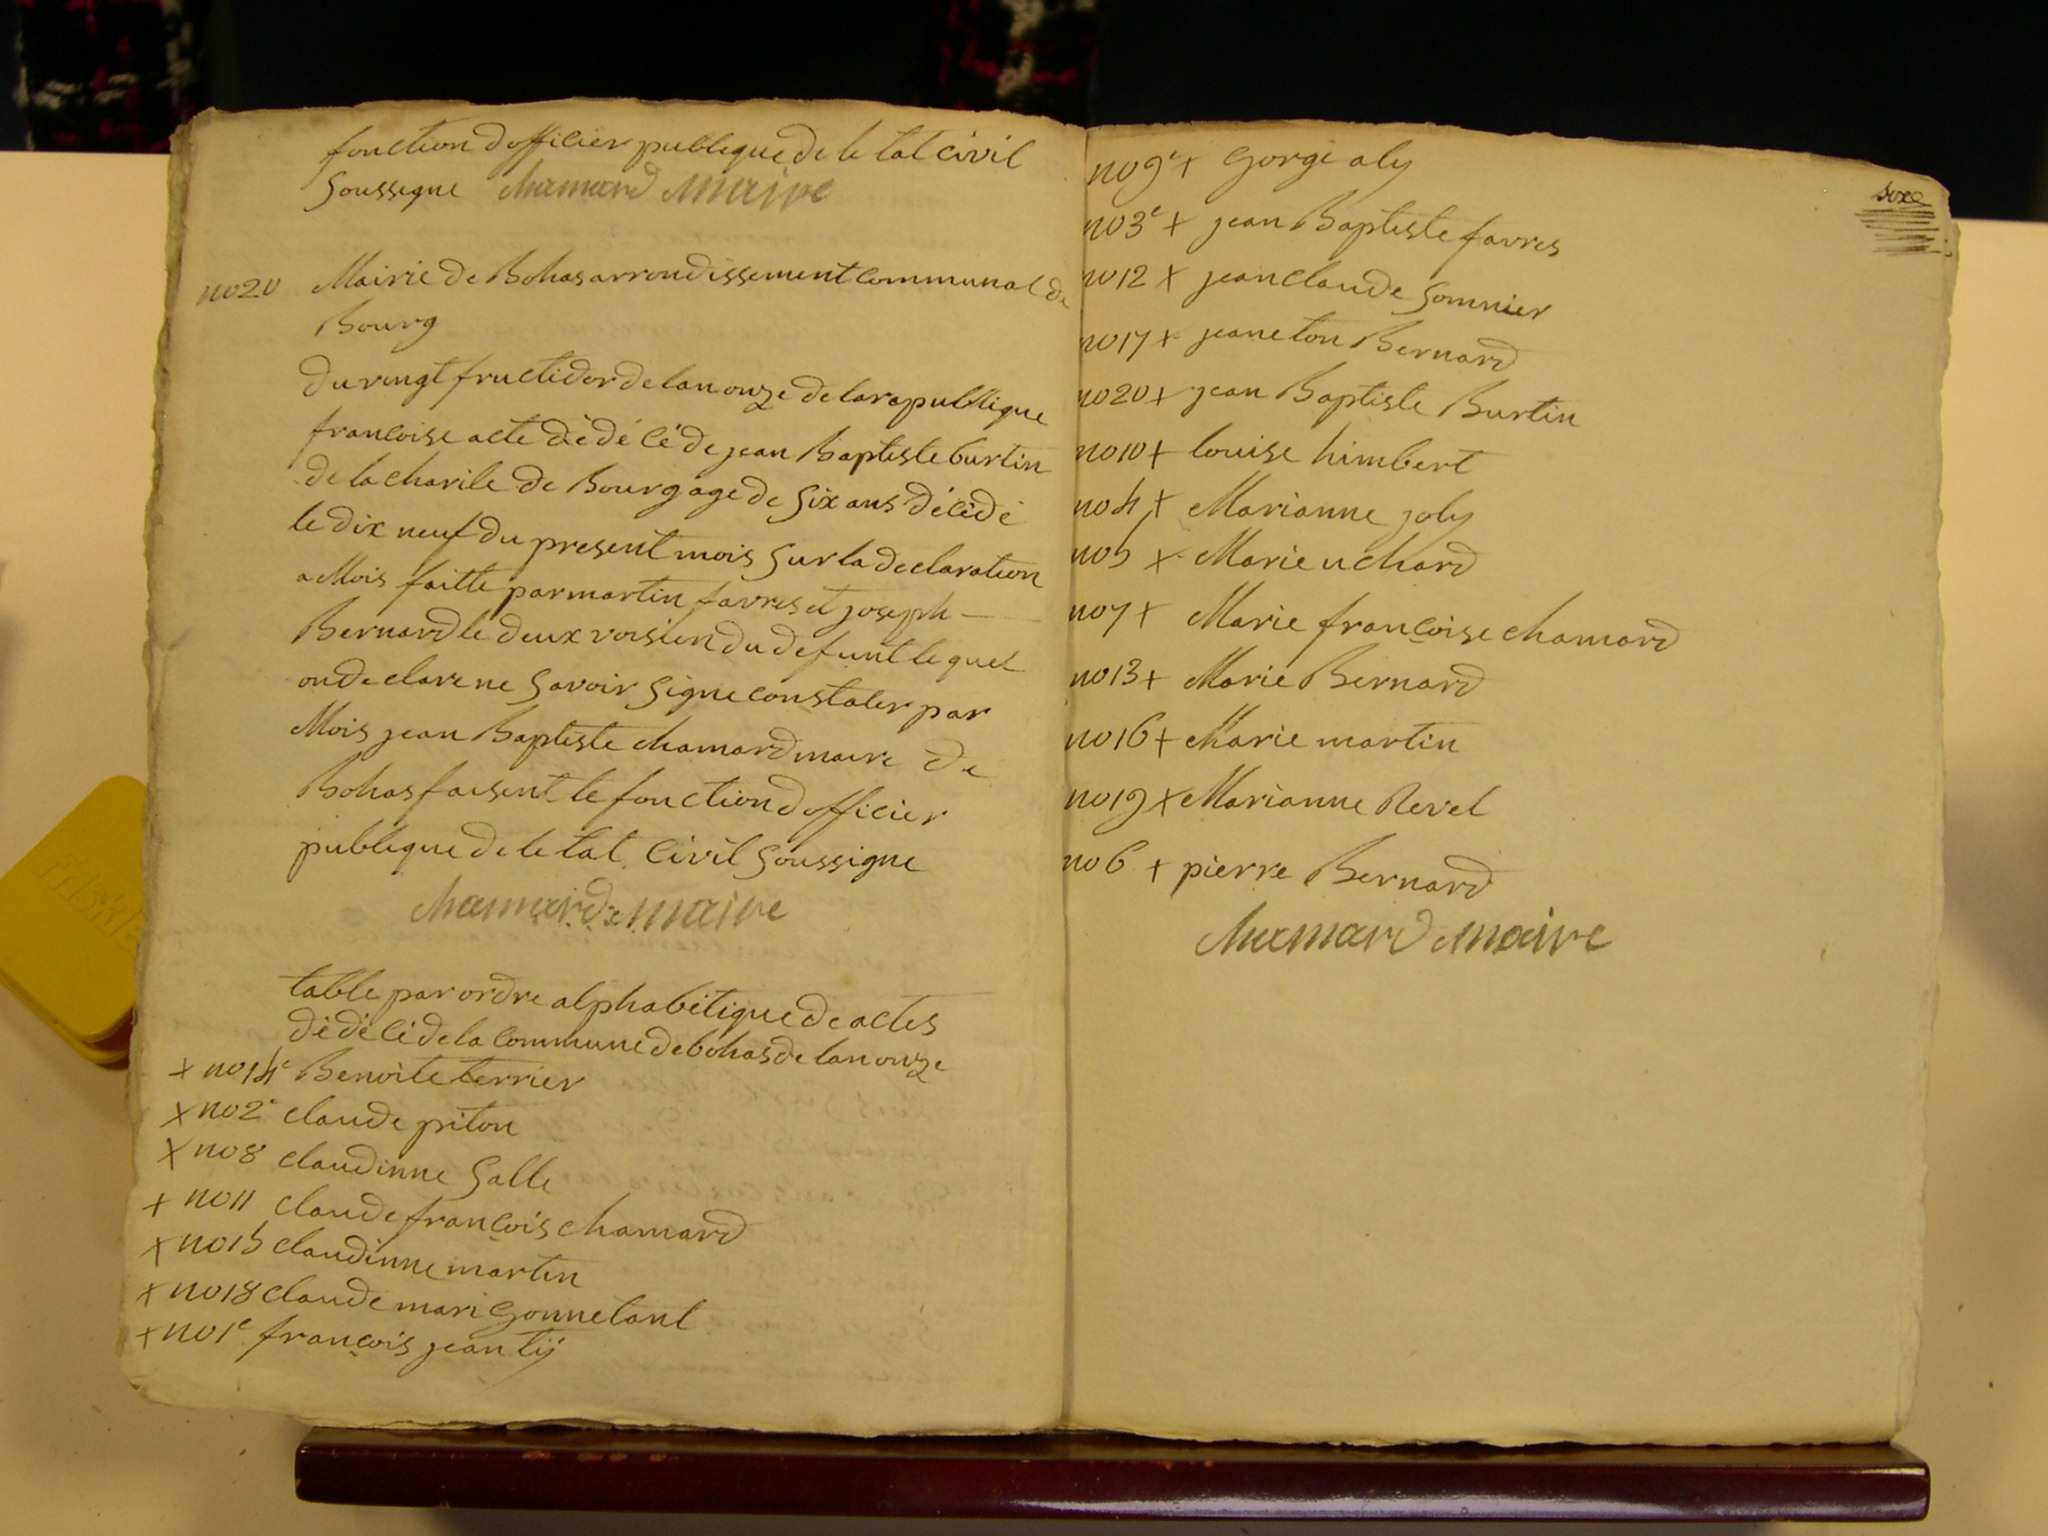 fonction d officier publique de le tat civil
soussigne chamard maire
no20 Mairie de Bohas arrondissement communal de
Bourg
du vingt fructidor de lan onze de la rapublique
francoise acte dé dé cé de jean Baptiste burtin
de la charile de Bourg age de six ans décédé
le dix neuf du present mois sur la declaration
a Mois faitte par martin favres et joseph —
Bernard le deux voisien du defunt le quel
on declare ne savoir signe constater par
Mois jean Baptiste chamard maire de
Bohas faisent le fonction d officier
publique de le tat civil soussigne
chamard maire
table par ordre alphabétique de actes
dé dé cé de la commune de bohas de lan onze
x no 14e Benoite terrier
x no 2e claude piton
x no 8 claudinne Salle
+ no 11 claude françois chamard
x no 15 claudinne martin
x no 18 claude mari gonnetant
+ no 1e françois jeantij
sixe
no 9e + gorge aly
no 3e + jean Baptiste favres
no 12 x jean claude Somnier
no 17 + jeaneton Bernard
no 20 + jean Baptiste Burtin
no 10 + louise himbert
no 4 x Marianne joly
no 5 x Marie uchard
no 7 + Marie françoise chamard
no 13 + Marie Bernard
no 16 + Marie martin
no 19 x Marianne Revel
no 6 + pierre Bernard
chamard maire